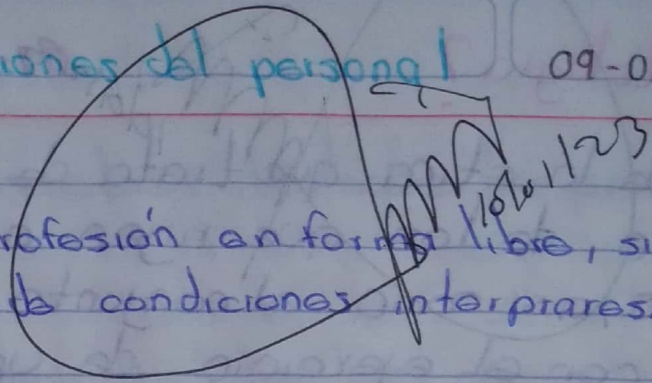 iones del personal 09-0
10/01/23
rofesión en forma libre, si
de condiciones interprares.